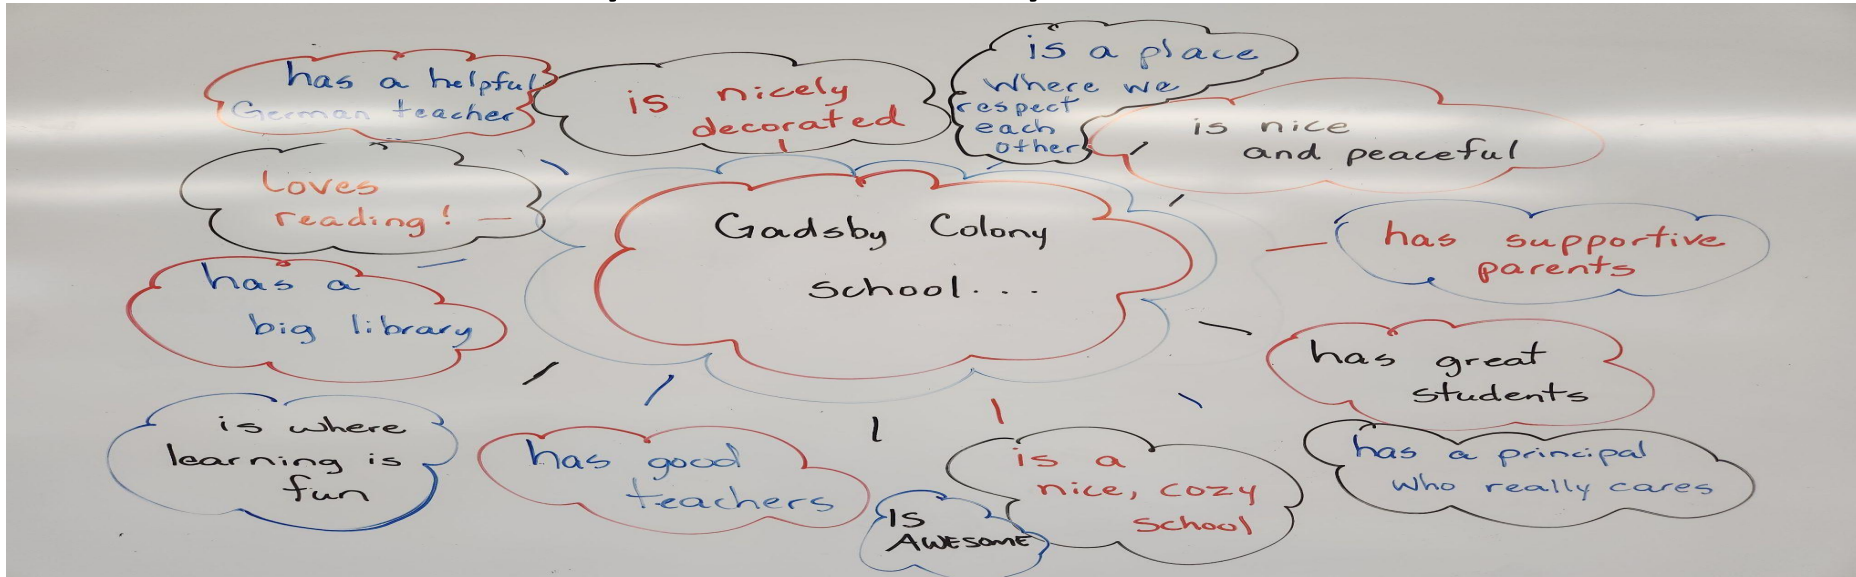 has a helpful
German teacher
is nicely
decorated
is a place
where we
respect
each
other
is nice
and peaceful
Loves
reading!
Gadsby Colony
school...
has supportive
parents
has a
big library
has great
students
is where
learning is
fun
has good
teachers
Is
AWESOME
is a
nice, cozy
school
has a principal
who really cares